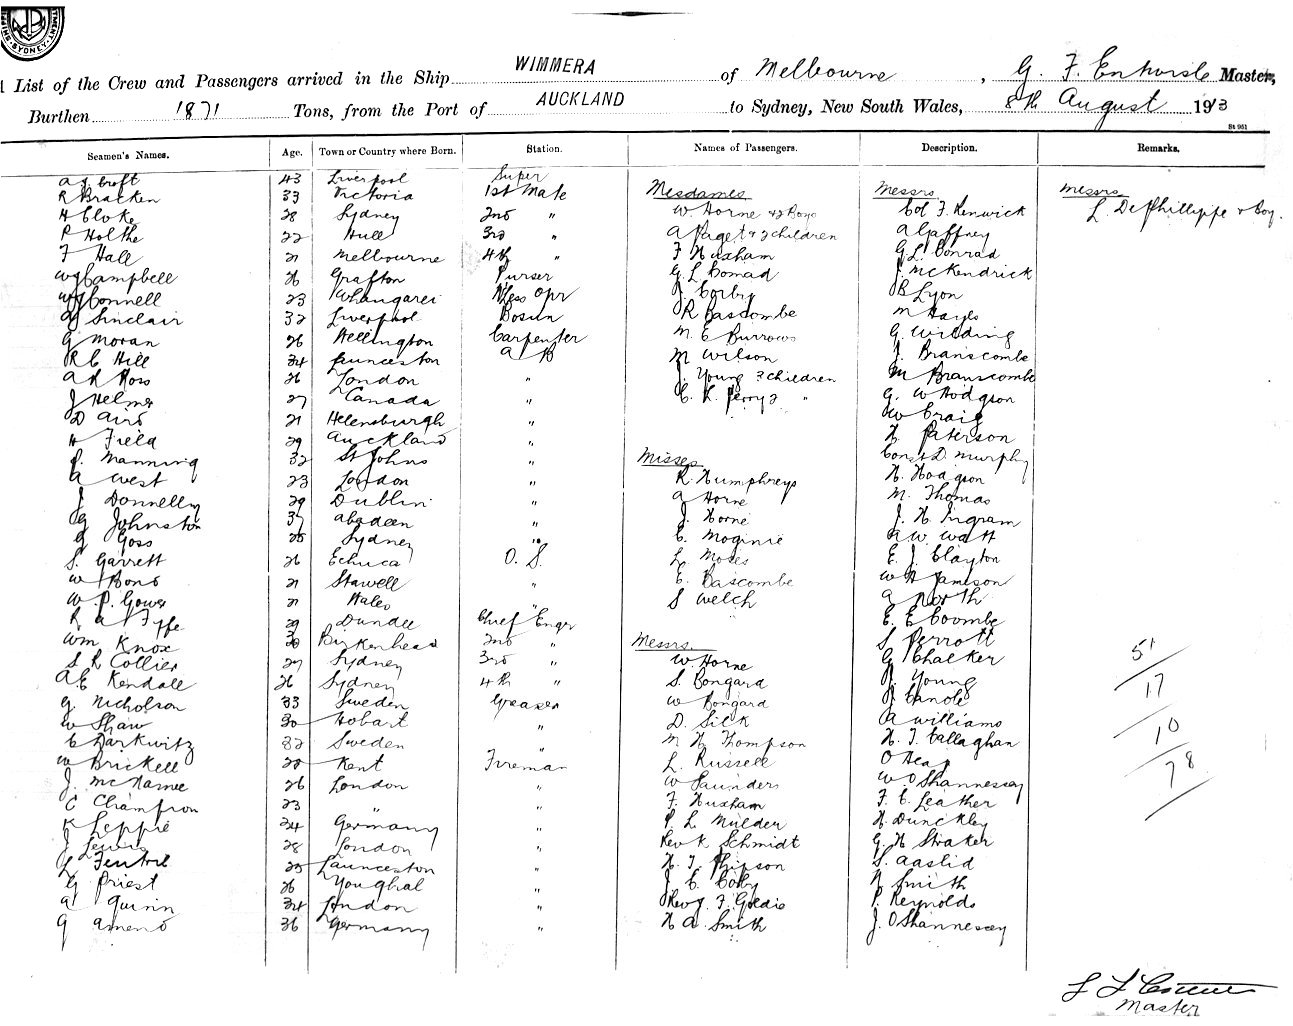 SYDNEY
List of the Crew and Passengers arrived in the Ship WIMMERA of Melbourne, G. F. Master,
Burthen 1871 Tons, from the Port of AUCKLAND to Sydney, New South Wales, 8th August 1913
St 951
Seamen's Names. Age. Town or Country where Born. Station. Names of Passengers. Description. Remarks.
A J Croft 43 Liverpool Super
R Bracken 33 Victoria 1st Mate Mesdames Messrs Messrs
H Cloke 28 Sydney 2nd " W Horne & 2 Boys Col F. Renwick L. De Phillippe & Boy.
P Holthe 22 Hull 3rd " A Paget & 2 children A Gaffney
F Hall 21 Melbourne 4th " F Huxham G L Conrad
W J Campbell 26 Grafton Purser G. L Conrad J. McKendrick
W J Connell 23 Whangarei W'less Opr J. Corby B Lyon
Sinclair 32 Liverpool Bosun R Bascombe M Hayes
G Moran 26 Wellington Carpenter M. E Burrows G. Wilding
R C Hill 34 Launceston A B M Wilson J. Branscombe
A R Ross 26 London " J. Young 3 children M Branscombe
J Helmer 27 Canada " C. L. Perry 2 " G. W Hodgson
D Aird 21 Helensburgh " W Craig
H Field 29 Auckland " H. Paterson
P. Manning 32 St Johns " Misses Const D. Murphy
A West 23 London " R. Humphreys H. Hodgson
J Donnelly 29 Dublin " A Horne M. Thomas
G Johnston 37 Abadeen " J. Horne J. H. Ingram
G Goss 25 Sydney " E. Moginie A W. Watt
S. Garrett 26 Echuca O. S. L. Moses E. J. Clayton
W Bond 21 Stawell " E. Bascombe W H Jamison
W. P. Gower 21 Wales " S Welch A North
R A Fyfe 29 Dundee Chief Engr E. E Coombe
Wm Knox 30 Birkenhead 2nd " Messrs. S. Perrott
S R Collier 27 Sydney 3rd " W Horne G Chalker 51
A E Kendall 26 Sydney 4th " S. Bongard Young 17
G. Nicholson 33 Sweden Greaser W Bongard
W Shaw 30 Hobart " D. Silk A Williams 10
C Darkwitz 32 Sweden " M H Thompson H. J. Callaghan
W Brickell 28 Kent Fireman L. Russell O Heap 78
J. McNamee 26 London " W Saunders W. O'Shannessey
C Champion 23 " " F. Huxham F. C. Leather
K Leppie 24 Germany " P L Mulder H. Dunckley
J Lewis 28 London " Rev K Schmidt G. H Straker
G Fentril 25 Launceston " H. J. Phipson S. Aaslid
G Priest 26 Youghal " J. C. Colby Smith
A Quinn 34 London " Rev J. F. Goldie P. Reynolds
G Amend 36 Germany " H A. Smith J. O'Shannessey
Master